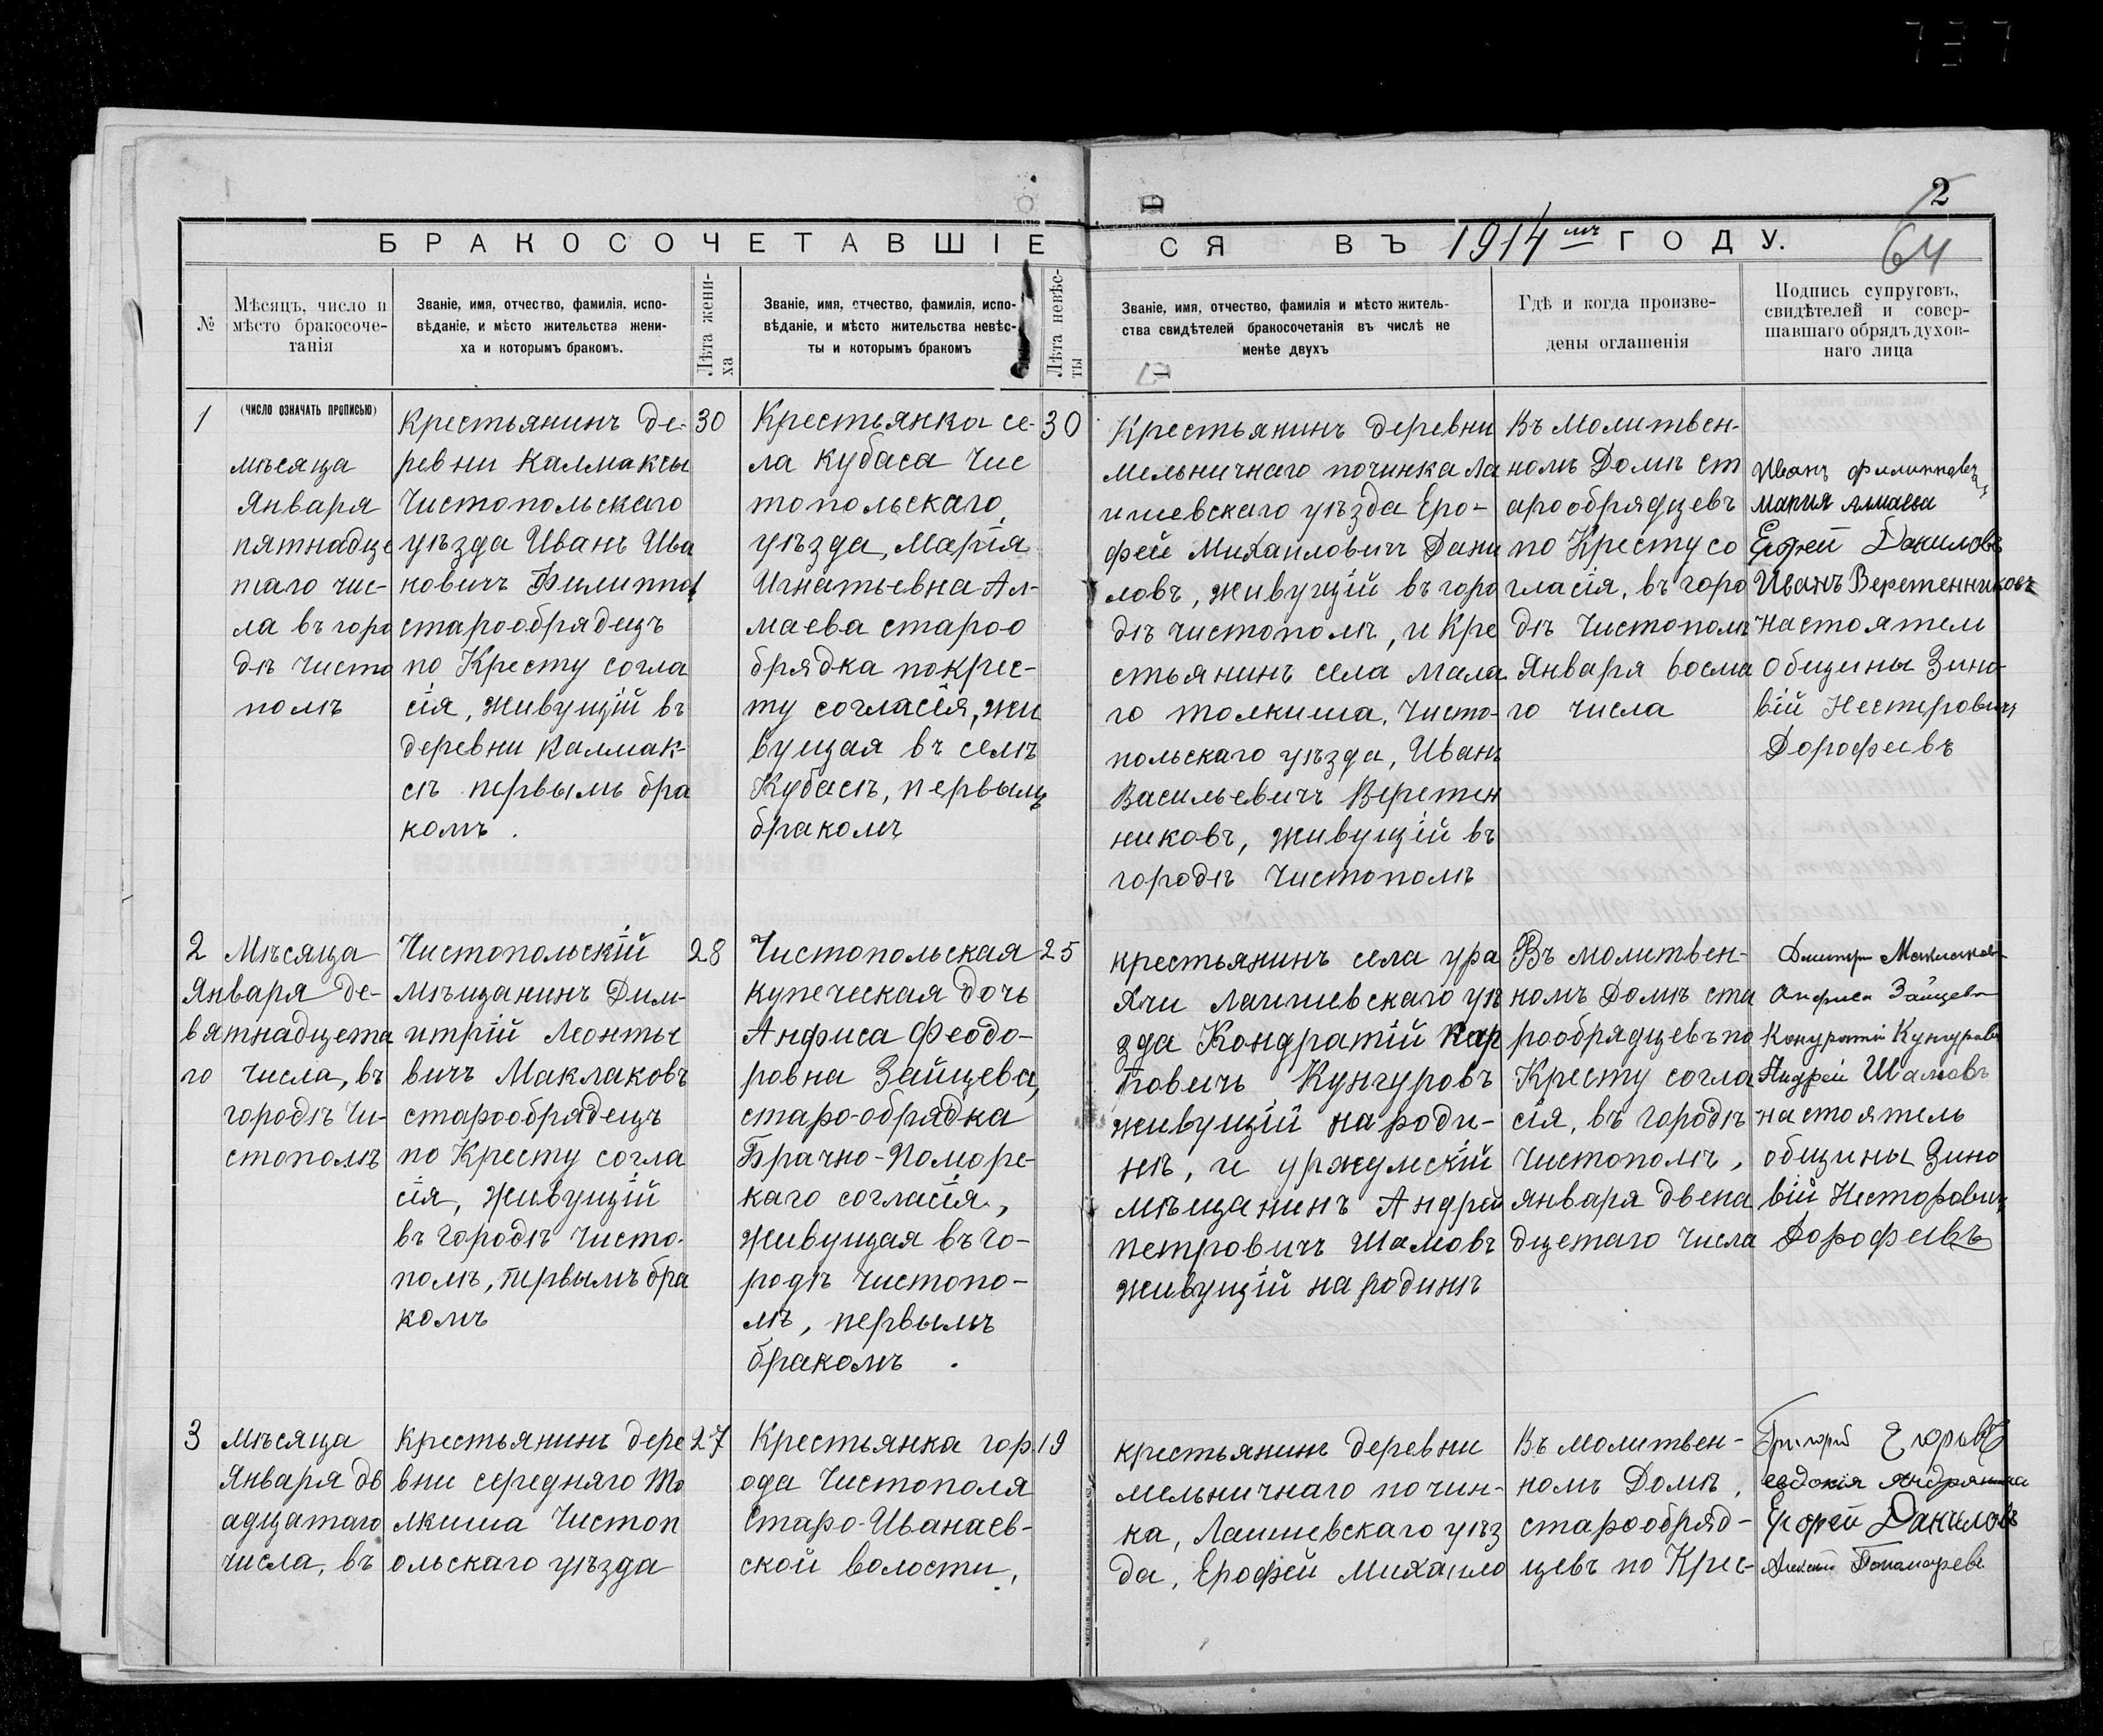 2
64
БРАКОСОЧЕТАВШІЕ
СЯ ВЪ 1914 мъ ГОДУ.
№
Мѣсяцъ, число и
мѣсто бракосоче-
танія
Званіе, имя, отчество, фамилія, испо-
вѣданіе, и мѣсто жительства жени-
ха и которымъ бракомъ.
Лѣта жени-
ха
Званіе, имя, отчество, фамилія, испо-
вѣданіе, и мѣсто жительства невѣс-
ты и которымъ бракомъ
Лѣта невѣс-
ты
Званіе, имя, отчество, фамилія и мѣсто житель-
ства свидѣтелей бракосочетанія въ числѣ не
менѣе двухъ
Гдѣ и когда произве-
дены оглашенія
Подпись супруговъ,
свидѣтелей и совер-
шавшаго обрядъ духов-
наго лица
1
(ЧИСЛО ОЗНАЧАТЬ ПРОПИСЬЮ)
мѣсяца
Января
пятнадце
таго чис-
ла въ горо
дѣ Чисто
полѣ
Крестьянинъ де-
ревни Калмаксы
Чистопольскаго
уѣзда Иванъ Ива
новичъ Филиппов
старообрядецъ
по Кресту согла
сія, живущій въ
деревни Калмак-
сѣ первымъ бра
комъ.
30
Крестьянка се-
ла Кубаса Чис
топольскаго
уѣзда, Марія
Игнатьевна Ал-
маева староо
брядка по крес-
ту согласія, жи
вущая въ селѣ
Кубасѣ, первымъ
бракомъ
30
Крестьянинъ деревни
мельничнаго починка Ла
ишевскаго уѣзда Еро-
фей Михаиловичъ Дани
ловъ, живущій въ горо
дѣ чистополѣ, и Кре
стьянинъ села Мала
го толкиша, Чисто-
польскаго уѣзда, Иванъ
Васильевичъ Веретен
никовъ, живущій въ
городѣ Чистополѣ
Въ Молитвен-
номъ Домѣ ст
арообрядцевъ
по Кресту со
гласія, въ горо
дѣ Чистополѣ
Января восма
го числа
Иванъ Филипповъ
Мария Алмаева
Ерофей Даниловъ
Иванъ Веретенниковъ
Настоятел
Общины Зино-
вій Нестерович
Дорофеевъ
2
Мѣсяца
Января де-
вятнадцета
го числа, въ
городѣ Чи-
стополѣ
Чистопольскій
Мѣщанинъ Дим-
итрій Леонтье
вичъ Маклаковъ
старообрядецъ
по Кресту согла
сія, живущій
въ городѣ Чисто-
полѣ, первымъ бра
комъ
28
Чистопольская
купеческая дочь
Анфиса Феодо-
ровна Зайцева,
старо-обрядка
Брачно-Поморс-
каго согласія,
живущая въ го-
родѣ Чистопо-
лѣ, первымъ
бракомъ.
25
крестьянинъ села ура
Хчи Лаишевскаго уѣ
зда Кондратій Кар
повичъ Кунгуровъ
живущій на роди-
нѣ, и уржумскій
мѣщанинъ Андрей
петровичъ Шамовъ
живущій на родинѣ
Въ молитвен-
номъ Домѣ ста
рообрядцевъ по
Кресту согла
сія, въ городѣ
Чистополѣ,
января двена
дцетаго числа
Дмитри Маклаковъ
Анфиса Зайцева
Кондратій Кунгуровъ
Андрей Шамовъ
настоятель
общины Зино
вій Несторович
Дорофеевъ
3
Мѣсяца
Января дв
адцатаго
числа, въ
Крестьянинъ дере
вни середняго То
лкиша Чистоп
ольскаго уѣзда
27
Крестьянка гор
ода Чистополя
Старо-Иванаев-
ской волости,
19
крестьянинъ деревни
мельничнаго почин-
ка, Лаишевскаго уѣз
да, Ерофей Михаило
Въ молитвен-
номъ Домѣ,
старообряд-
цевъ по Крес-
Григорій Егоровъ
евдокія Андрянина
Ерофей Даниловъ
Алексѣй Пономаревъ